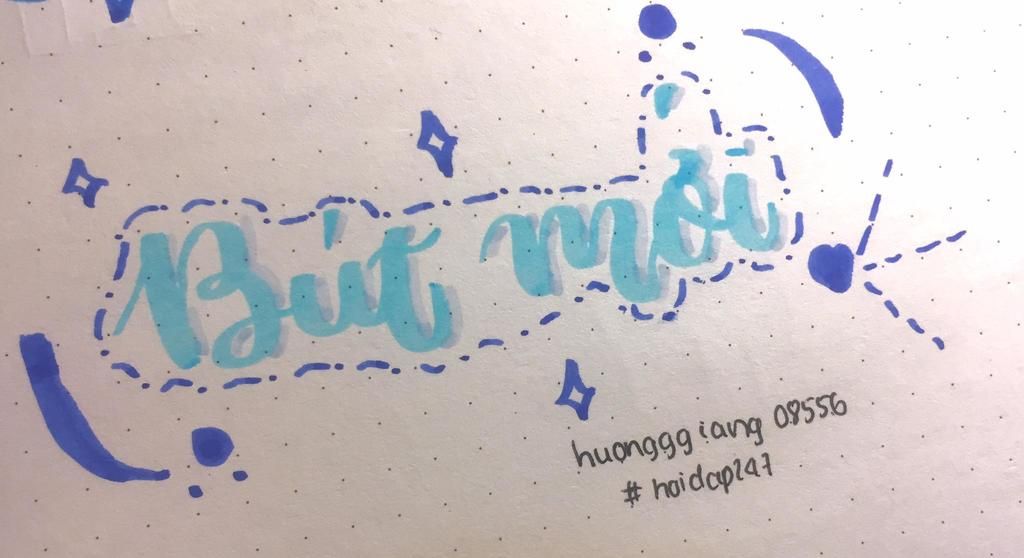 Bút mới
huonggg iang 08556
# hoidap247